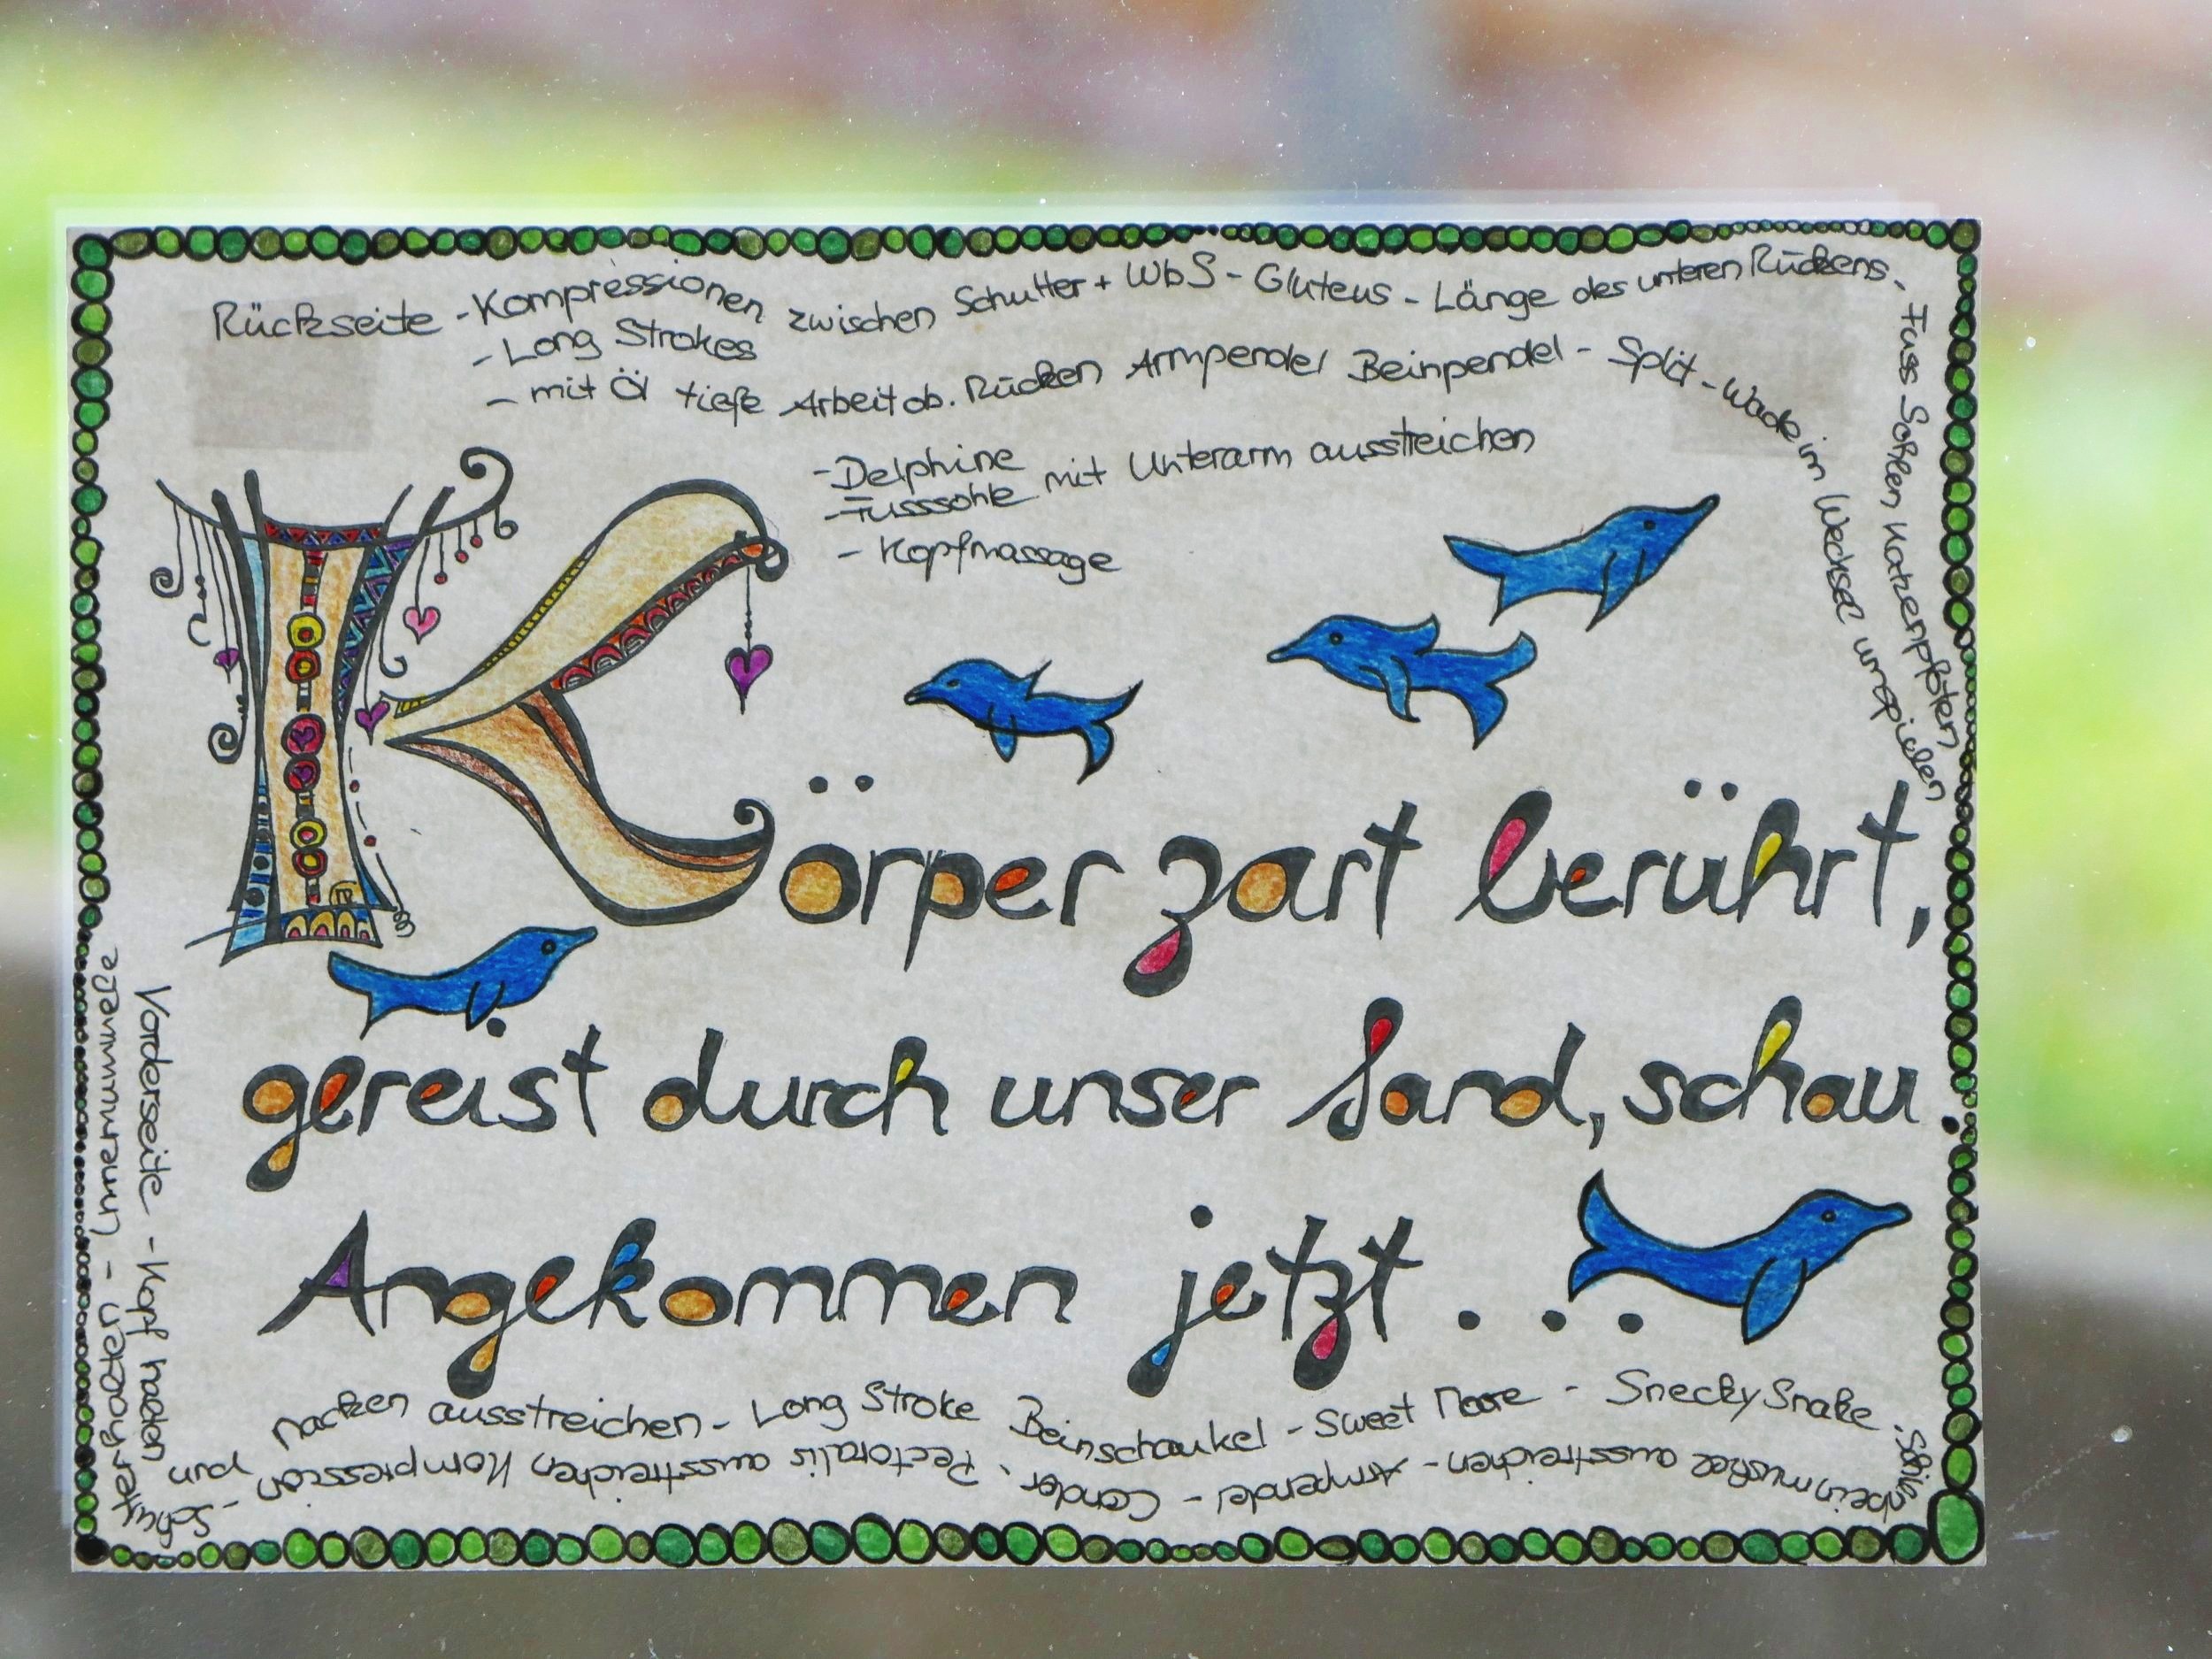 Rückseite - Kompressionen zwischen Schulter + WbS - Gluteus - Länge des unteren Rückens -
- Long Strokes
- mit Öl tiefe Arbeit ob. Rücken Armpendel Beinpendel - Split - Wade im Wechsel umspielen
Fuss Sohlen, Katzenpfoten
- Delphine
- Fusssohle mit Unterarm ausstreichen
- Kopfmassage
Körper zart berührt,
gereist durch unser Land, schau.
Angekommen jetzt...
Vorderseite - Kopf halten und
Nacken ausstreichen - Long Stroke Beinschaukel - Sweet - Snecky Snake -
Schienbeinmuskel ausstreichen - Armpendel - Condor, Pectoralis ausstreichen Kompression -
Schulterglocken -